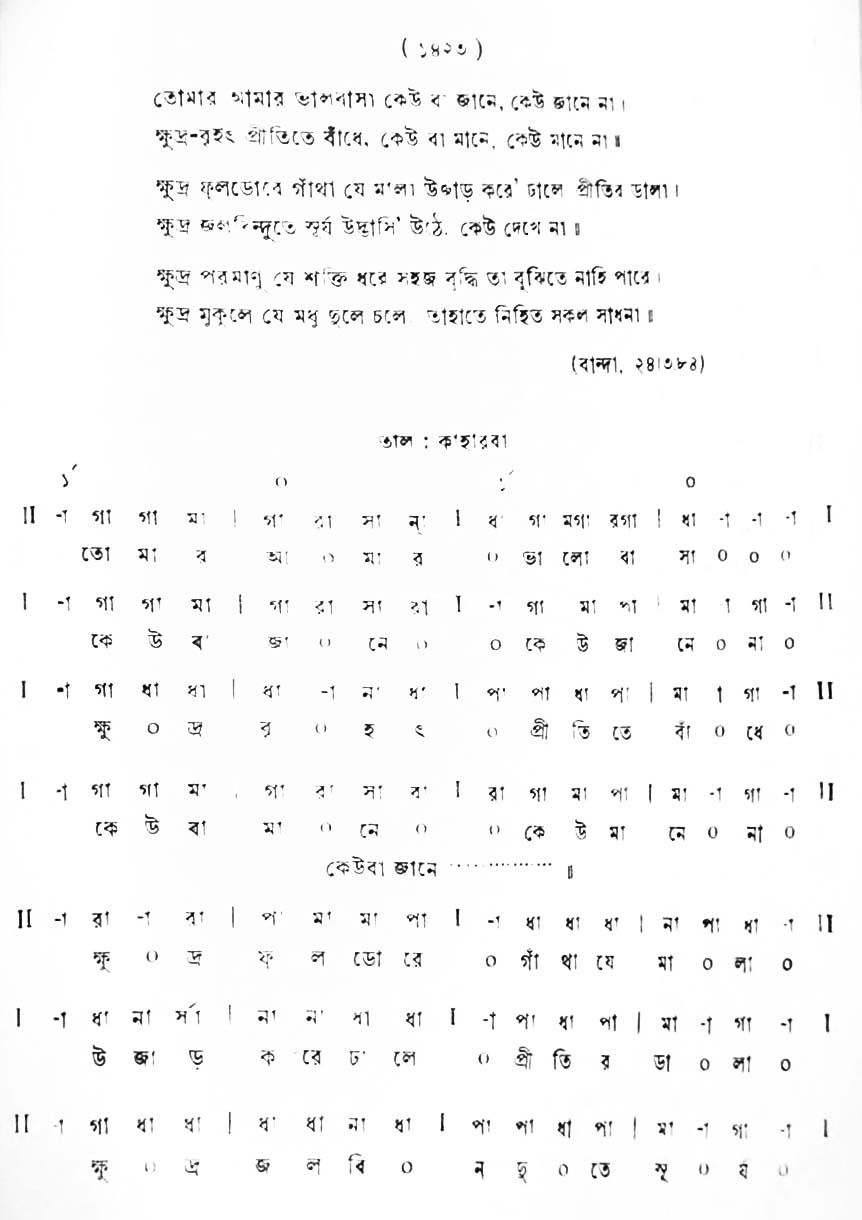 ( ১৪২৩ )
তোমার আমার ভালবাসা কেউ বা জানে, কেউ জানে না।
ক্ষুদ্র-বৃহৎ প্রীতিতে বাঁধে, কেউ বা মানে, কেউ মানে না॥
ক্ষুদ্র ফুলডোরে গাঁথা যে মালা উজাড় করে' ঢালে প্রীতির ডালা।
ক্ষুদ্র জলবিন্দুতে সূর্য উদ্ভাসি' উঠে, কেউ দেখে না॥
ক্ষুদ্র পরমাণু যে শক্তি ধরে সহজ বুদ্ধি তা বুঝিতে নাহি পারে।
ক্ষুদ্র মুকুলে যে মধু তুলে চলে, তাহাতে নিহিত সকল সাধনা॥
(বান্দা, ২৪।৩।৮৪)
তাল : কাহারবা
১´ ০ ১´ ০
II -া গা গা মা | গা রা সা ন্া I ধা গা মগা রগা | ধা -া -া -া I
তো মা র আ ০ মা র ০ ভা লো বা সা ০ ০ ০
I -া গা গা মা | গা রা সা রা I -া গা মা পা | মা া গা -া II
কে উ বা জা ০ নে ০ ০ কে উ জা নে ০ না ০
I -া গা ধা ধা | ধা -া না ধা I পা পা ধা পা | মা া গা -া II
ক্ষু ০ দ্র বৃ ০ হ ৎ ০ প্রী তি তে বাঁ ০ ধে ০
I -া গা গা মা | গা রা সা রা I রা গা মা পা | মা -া গা -া II
কে উ বা মা ০ নে ০ ০ কে উ মা নে ০ না ০
কেউবা জানে ··············· ॥
II -া রা -া রা | পা মা মা পা I -া ধা ধা ধা | না পা ধা -া II
ক্ষু ০ দ্র ফু ল ডো রে ০ গাঁ থা যে মা ০ লা ০
I -া ধা না র্সা | না না ধা ধা I -া পা ধা পা | মা -া গা -া I
উ জা ড় ক রে ঢা লে ০ প্রী তি র ডা ০ লা ০
II -া গা ধা ধা | ধা ধা না ধা I পা পা ধা পা | মা -া গা -া I
ক্ষু ০ দ্র জ ল বি ০ ন্ দু ০ তে সূ ০ র্য ০